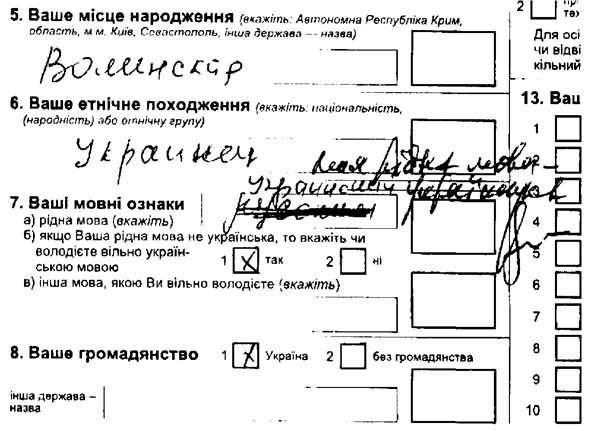 5. Ваше місце народження (вкажіть: Автономна Республіка Крим,
область, м.м. Київ, Севастополь, інша держава — назва)
Волинская
6. Ваше етнічне походження (вкажіть: національність,
(народність) або етнічну групу)
Украинец
моя рідна мова -
українська
7. Ваші мовні ознаки
а) рідна мова (вкажіть)
б) якщо Ваша рідна мова не українська, то вкажіть чи
володієте вільно україн-
ською мовою
1 X так 2 ні
в) інша мова, якою Ви вільно володієте (вкажіть)
8. Ваше громадянство 1 X Україна 2 без громадянства
інша держава –
назва
2
Для осі
чи відві
кільний
13. Ваш
1
2
3
4
5
6
7
8
9
10